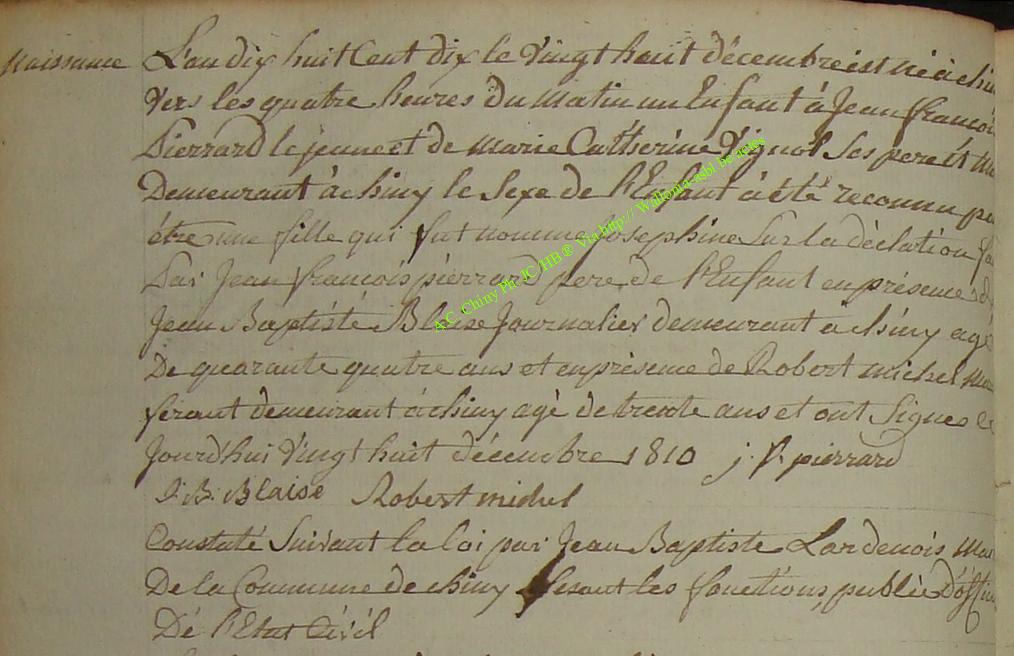 Naissance L'an dix huit Cent dix le Vingt huit décembre est né à chi
Vers les quatre heures du Matin un Enfant à Jean françois
Pierrard le jeune et de Marie Catherine Vignol Ses pere et M
Demeurant à chiny le Sexe de l'Enfant à été reconnu p
être une fille qui fut nommé Josephine Sur la déclation f
Par Jean françois pierrard pere de l'Enfant en présence d
Jean Baptiste Blaise Journalier demeurant à chiny agé
De quarante quatre ans et en présense de Robert michel
demeurant à chiny agé de trente ans et ont Signes
Jourdhui Vingt huit décembre 1810 j. f. pierrard
J. B. Blaise Robert michel
Constaté Suivant la loi par Jean Baptiste Lardenois Ma
De la Commune de chiny fesant les fonctions public d'offi
De l'Etat Civil
A.C. Chiny Ph. JC HB® Via http:// Wallonia-asbl.be actes